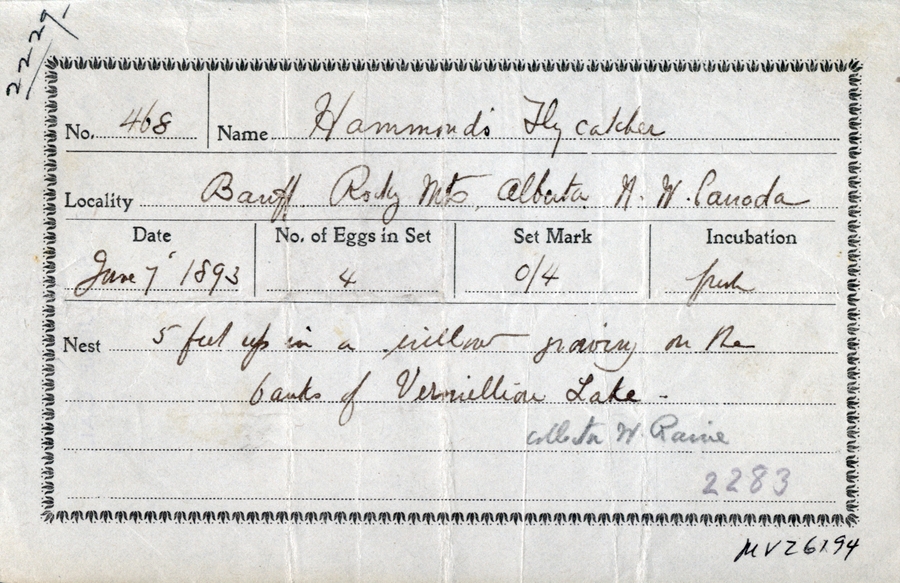 2229
No. 468 Name Hammond's Flycatcher
Locality Banff Rocky Mts, Alberta N. W. Canada
Date No. of Eggs in Set Set Mark Incubation
June 7 1893 4 0/4 fresh
Nest 5 feet up in a willow growing on the
banks of Vermillion Lake -
W. Raine
2283
MV26194